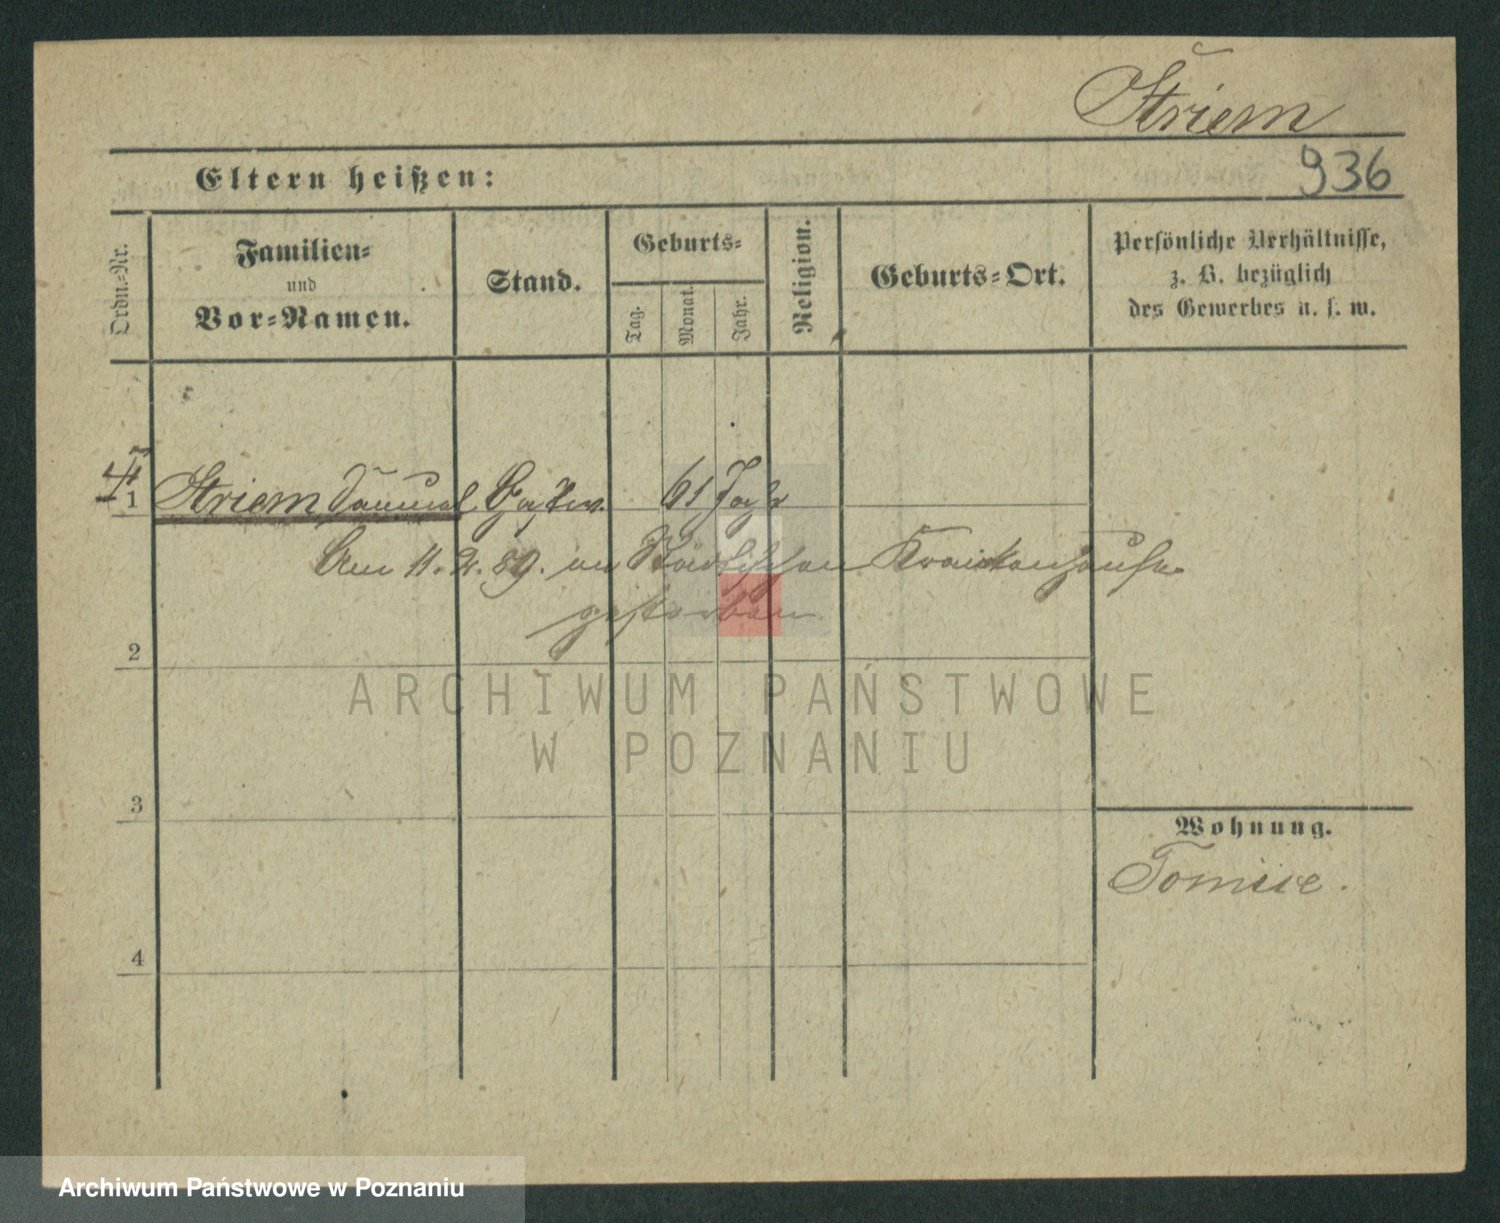 Striem
936
Eltern heißen:
Ordn.-Nr.
Familien-
und
Vor-Namen.
Stand.
Geburts-
Tag.
Monat.
Jahr.
Religion.
Geburts-Ort.
Persönliche Verhältnisse,
z. B. bezüglich
des Gewerbes u. s. w.
1 Striem Samuel Gastw. 61 Jahr
Am 11. 2. 89. im Städtischen Krankenhause
gestorben
2
ARCHIWUM PAŃSTWOWE
W POZNANIU
3
Wohnung.
4
Archiwum Państwowe w Poznaniu